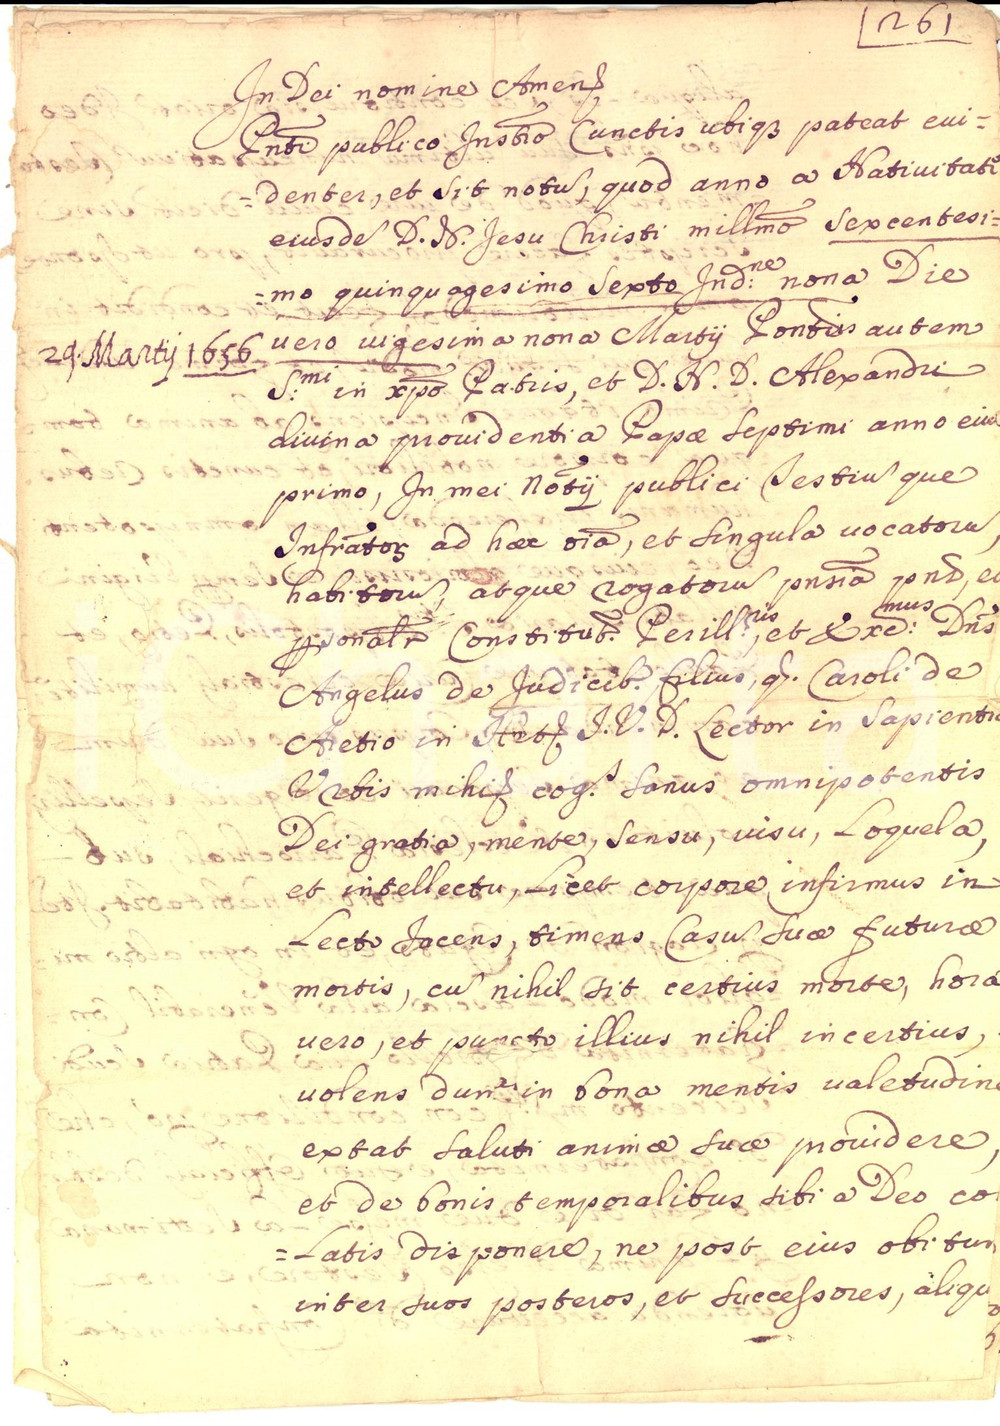 261
In Dei nomine Amen
Pnti publico Instro Cunctis ubiq3 pateat eui=
=denter, et sit notu, quod anno a Natiuitati
eiusde D. N. Jesu Christi millmo sexcentesi=
=mo quinquagesimo sexto Ind:ne nona Die
29. Martij 1656 uero uigesima nona Martij Pontus autem
S:mi in xpo Patris, et D. N. D. Alexandri
diuina prouidentia Papæ septimi anno eius
primo, In mei Notij publici Testiu que
Infrator ad hæc oia, et singula uocatoru,
habitoru, atque rogatoru pnsia pnd, et
psonalr Constitut. Perill:ris, et Exc:mus Dns
Angelus de Judicib. filius, q. Caroli de
Aretio in I.V.D. Lector in Sapientia
Urbis mihi cog. sanus omnipotentis
Dei gratia, mente, sensu, uisu, Loquela,
et intellectu, Licet corpore infirmus in
Lecto Jacens, timens Casu suæ futuræ
mortis, cu nihil sit certius morte, hora
uero, et puncto illius nihil incertius,
uolens dum in bona mentis ualetudine
extat saluti animæ suæ prouidere,
et de bonis temporalibus sibi a Deo col
=Latis disponere, ne post eius obitum
inter suos posteros, et successores, aliqu